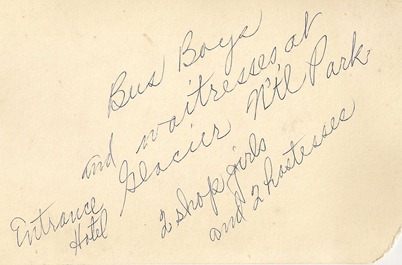 Bus Boys
and waitresses at
Glacier Nt'l Park
Entrance
Hotel
2 shop girls
and 2 hostesses